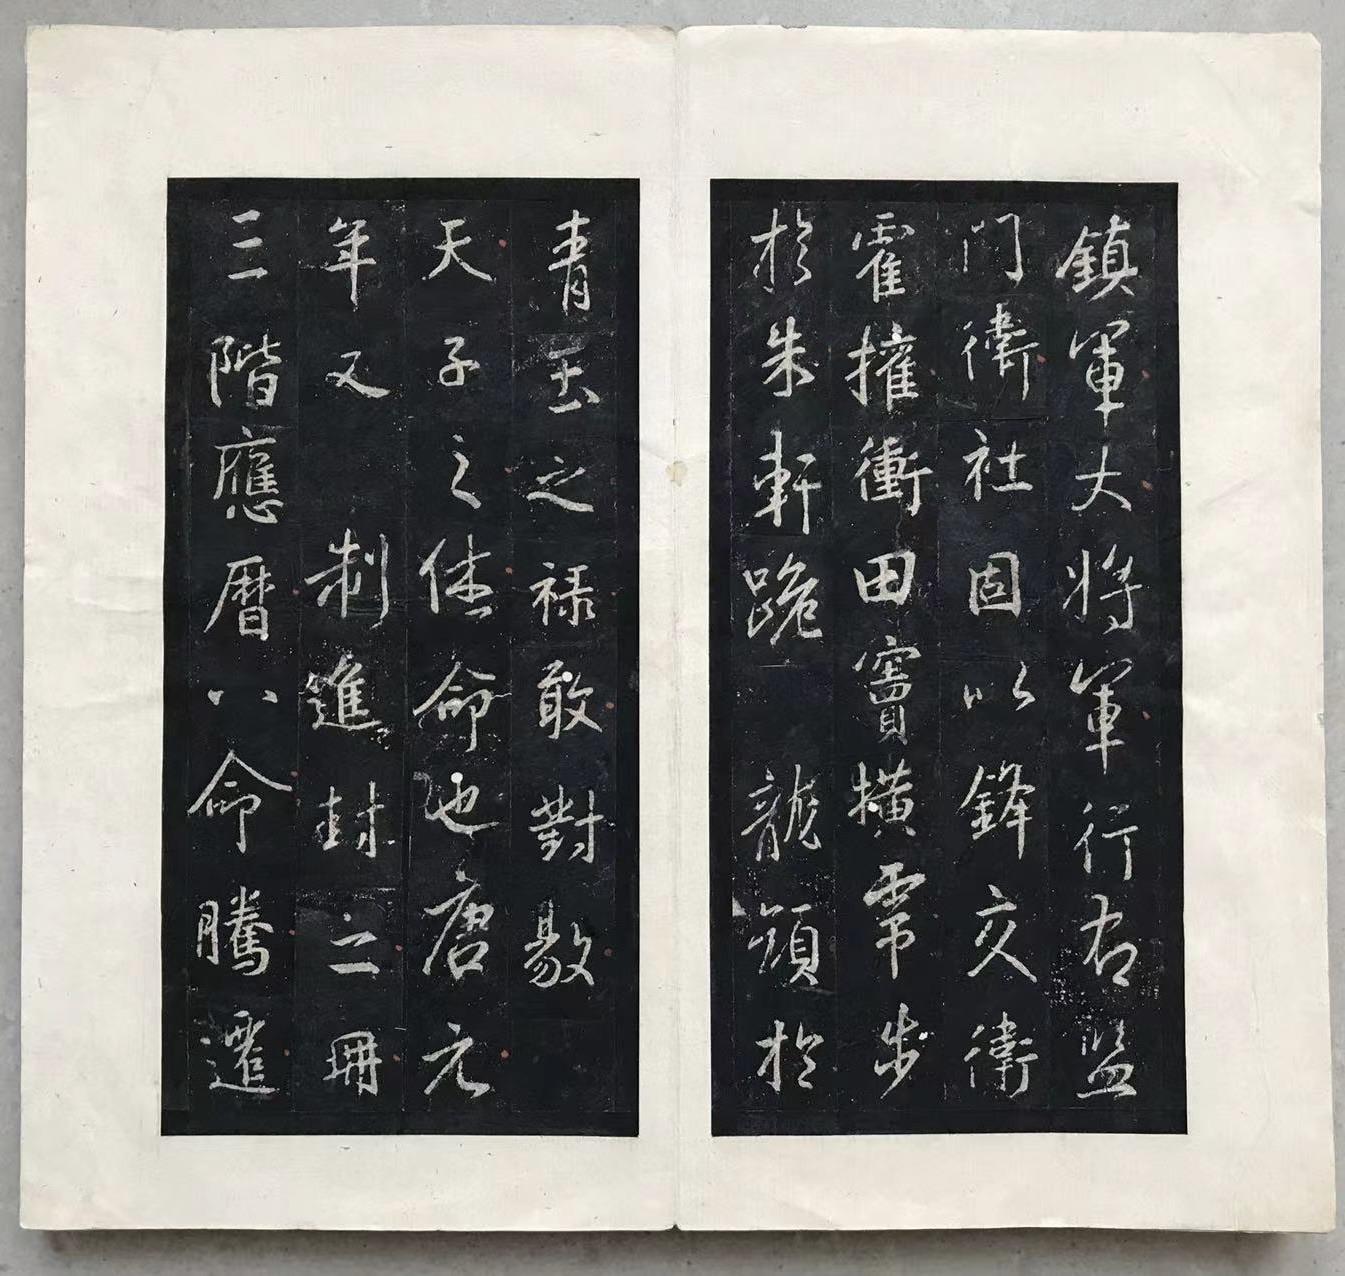 鎮軍大將軍行右監
門衛社固以鋒交衛
霍擁衝田竇撗帶步
於朱軒跪龍頟於
青玉之禄敢對敭
天子之休命也唐元
年又制進封二冊
三階應曆八命騰遷